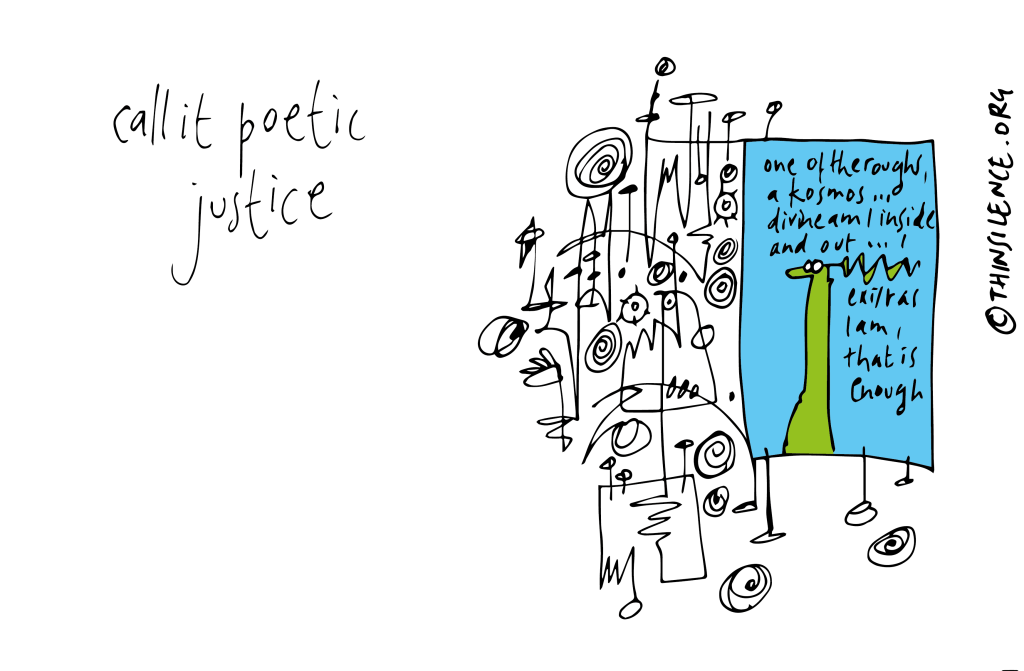 call it poetic
justice
one of the roughs,
a kosmos ...
divine am I inside
and out ... I
exist as
I am,
that is
Enough
©THINSILENCE.ORG